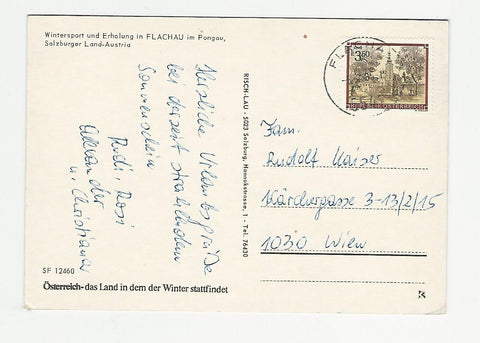 Wintersport und Erholung in FLACHAU im Pongau,
Salzburger Land-Austria
Herzliche Urlaubsgrüße
bei derzeit strahlendem
Sonnenschein
Rudi, Rosi
Alexander
u. Christiane
SF 12460
Österreich- das Land in dem der Winter stattfindet
RISCH-LAU · 5023 Salzburg, Hannakstrasse, 1 · Tel. 76430
FLACHAU
3.50
REPUBLIK ÖSTERREICH
Fam.
Rudolf Kaiser
Kärchergasse 3-13/2/15
1030 Wien